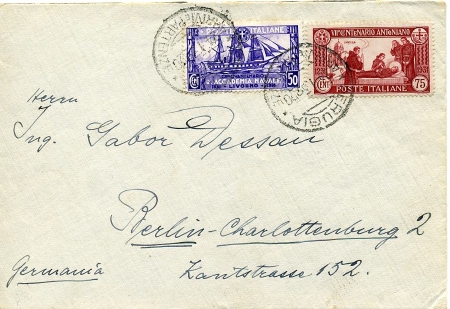 POSTE ITALIANE
R. ACCADEMIA NAVALE
LIVORNO
50
VII CENTENARIO ANTONIANO
CENT POSTE ITALIANE 75
PERUGIA
Herrn
Ing. Gabor Dessau
Berlin-Charlottenburg 2
Germania
Kantstrasse 152.